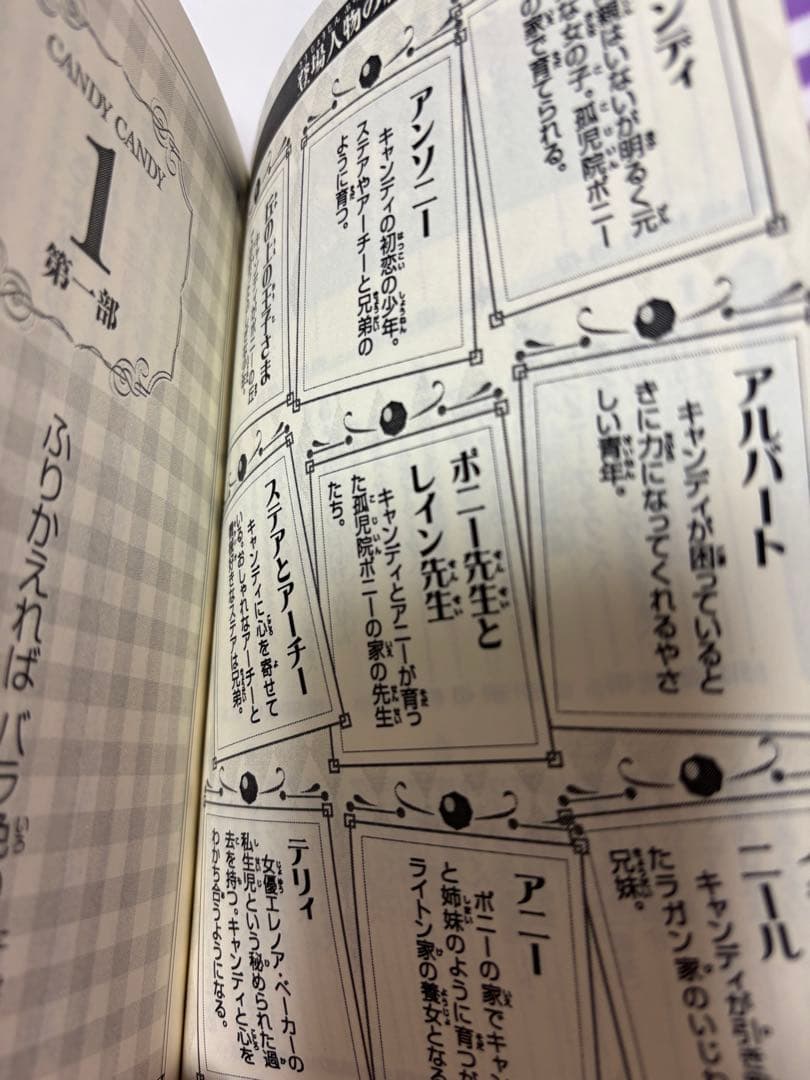 CANDY CANDY
1
第一部
ふりかえれば バラ色の
登場人物の
ンディ
親はいないが明るく元
な女の子。孤児院ポニー
の家で育てられる。
アンソニー
キャンディの初恋の少年。
ステアやアーチーと兄弟の
ように育つ。
丘の上の王子さま
アルバート
キャンディが困っていると
きに力になってくれるやさ
しい青年。
ポニー先生と
レイン先生
キャンディとアニーが育っ
た孤児院ポニーの家の先生
たち。
ステアとアーチー
キャンディに心を寄せて
いる。おしゃれなアーチーと
発明好きなステアは兄弟。
ニール
キャンディが引き
たラガン家のいじわ
兄妹。
アニー
ポニーの家でキャン
と姉妹のように育つが
ライトン家の養女となる
テリィ
女優エレノア・ベーカーの
私生児という秘められた過
去を持つ。キャンディと心を
わかち合うようになる。